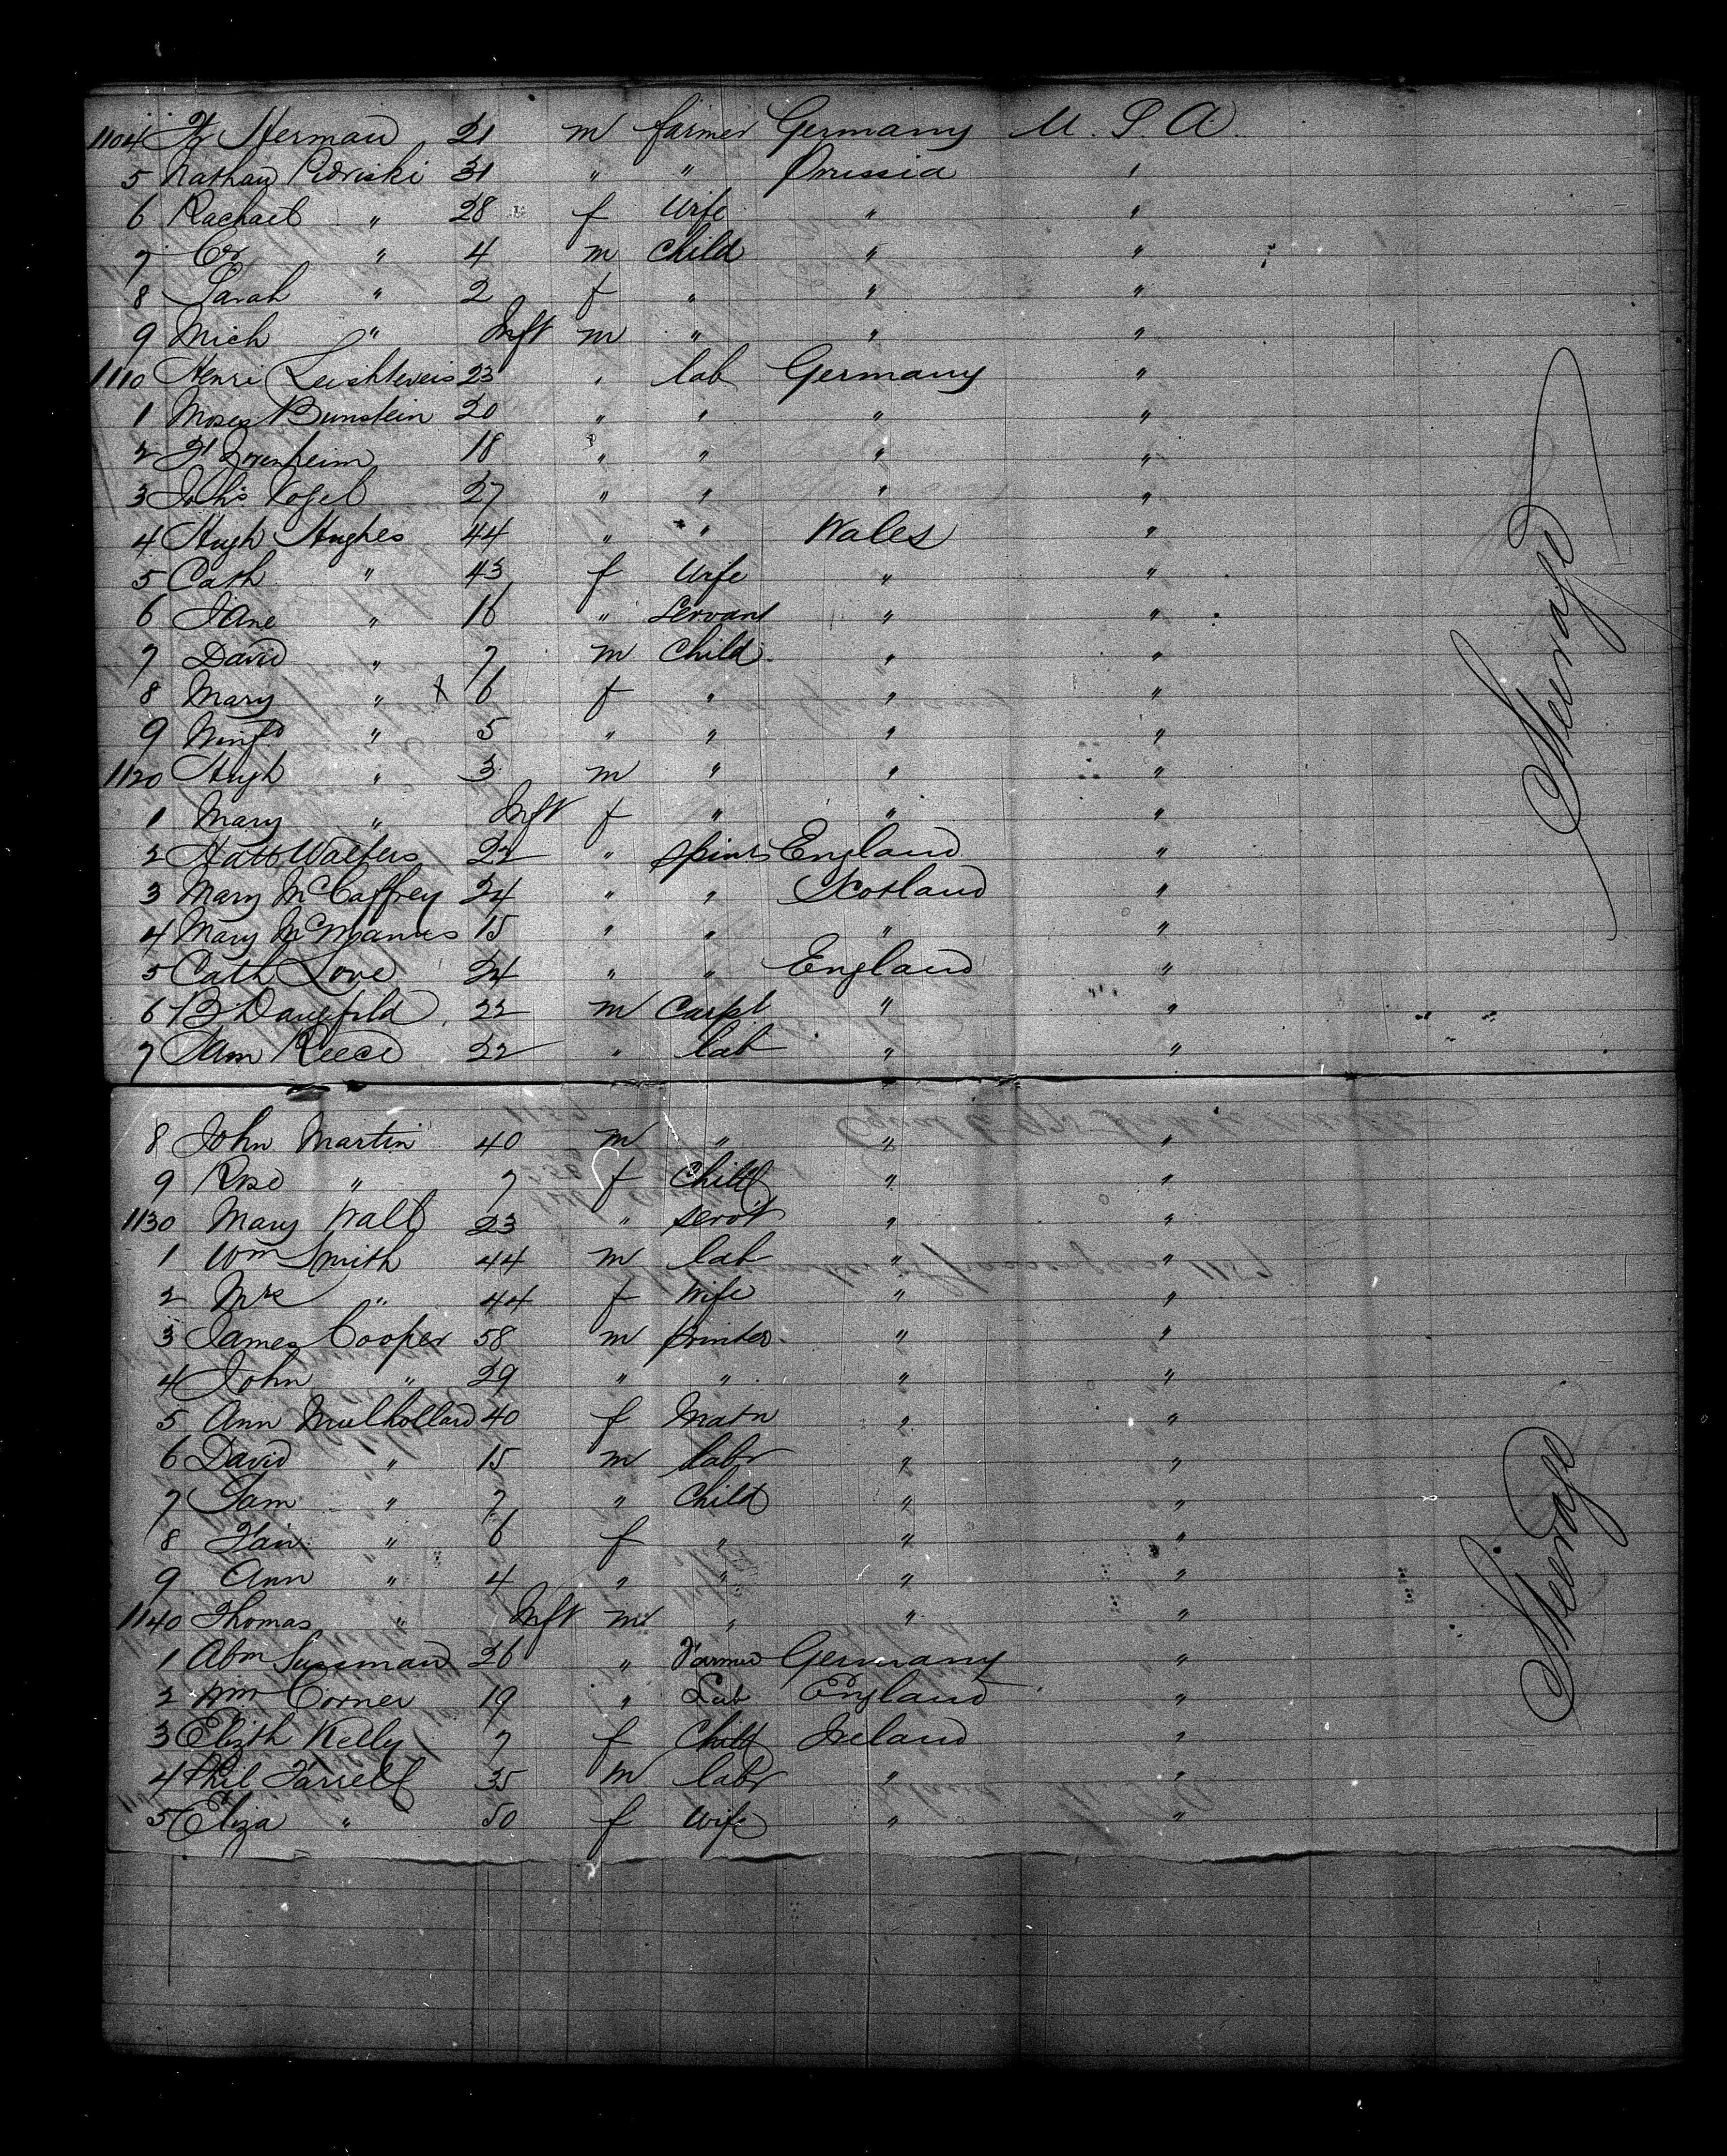 1104 Fz Herman 21 m farmer Germany U. S. A.
5 Nathan Pidriski 31 " " Prussia "
6 Rachael " 28 f wife " "
7 " 4 m child " "
8 Sarah " 2 f " " "
9 Mich " Inft m " " "
1110 Henri 23 " lab Germany "
1 Moses Bunstein 20 " " " "
2 18 " " " "
3 Johs Vogel 27 " " " "
4 Hugh Hughes 44 " " Wales "
5 Cath " 43 f wife " "
6 Jane " 16 " servant " "
7 David " 7 m child " "
8 Mary " x 6 f " " "
9 Winfd " 5 " " " "
1120 Hugh " 3 m " " "
1 Mary " Inft f " " "
2 Walters 22 " spinr England "
3 Mary McCaffrey 24 " " Scotland "
4 Mary McManus 15 " " " "
5 Cath Love 24 " " England "
6 B Dangfild 22 m carpt " "
7 Sam Reece 22 " lab " "
8 John Martin 40 m " " "
9 Rose " 7 f child " "
1130 Mary Wall 23 " servt " "
1 Wm Smith 44 m lab " "
2 Mrs " 44 f wife " "
3 James Cooper 58 m printer " "
4 John " 29 " " " "
5 Ann Mulholland 40 f matn " "
6 David " 15 m labr " "
7 Sam " 7 " child " "
8 " 6 f " " "
9 Ann " 4 " " " "
1140 Thomas " Inft m " " "
1 Abm Sussman 26 " Farmer Germany "
2 Wm Corner 19 " Lab England "
3 Elizth Kelly 7 f child Ireland "
4 Phil Farrell 35 m labr " "
5 Eliza " 50 f wife " "
Steerage
Steerage